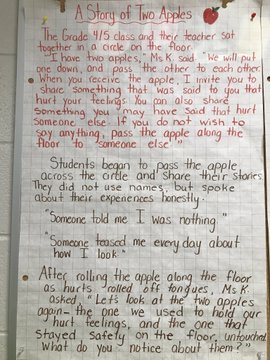 A Story of Two Apples
The Grade 4/5 class and their teacher sat
together in a circle on the floor.
"I have two apples," Ms. K said. "We will put
one down, and pass the other to each other.
When you receive the apple, I invite you to
share something that was said to you that
hurt your feelings. You can also share
something you may have said that hurt
someone else. If you do not wish to
say anything, pass the apple along the
floor to someone else."
Students began to pass the apple
across the circle and share their stories.
They did not use names, but spoke
about their experiences honestly.
"Someone told me I was nothing."
"Someone teased me every day about
how I look."
After rolling the apple along the floor
as hurts rolled off tongues, Ms. K
asked, "Let's look at the two apples
again - the one we used to hold our
hurt feelings, and the one that
stayed safely on the floor, untouched.
What do you notice about them?"